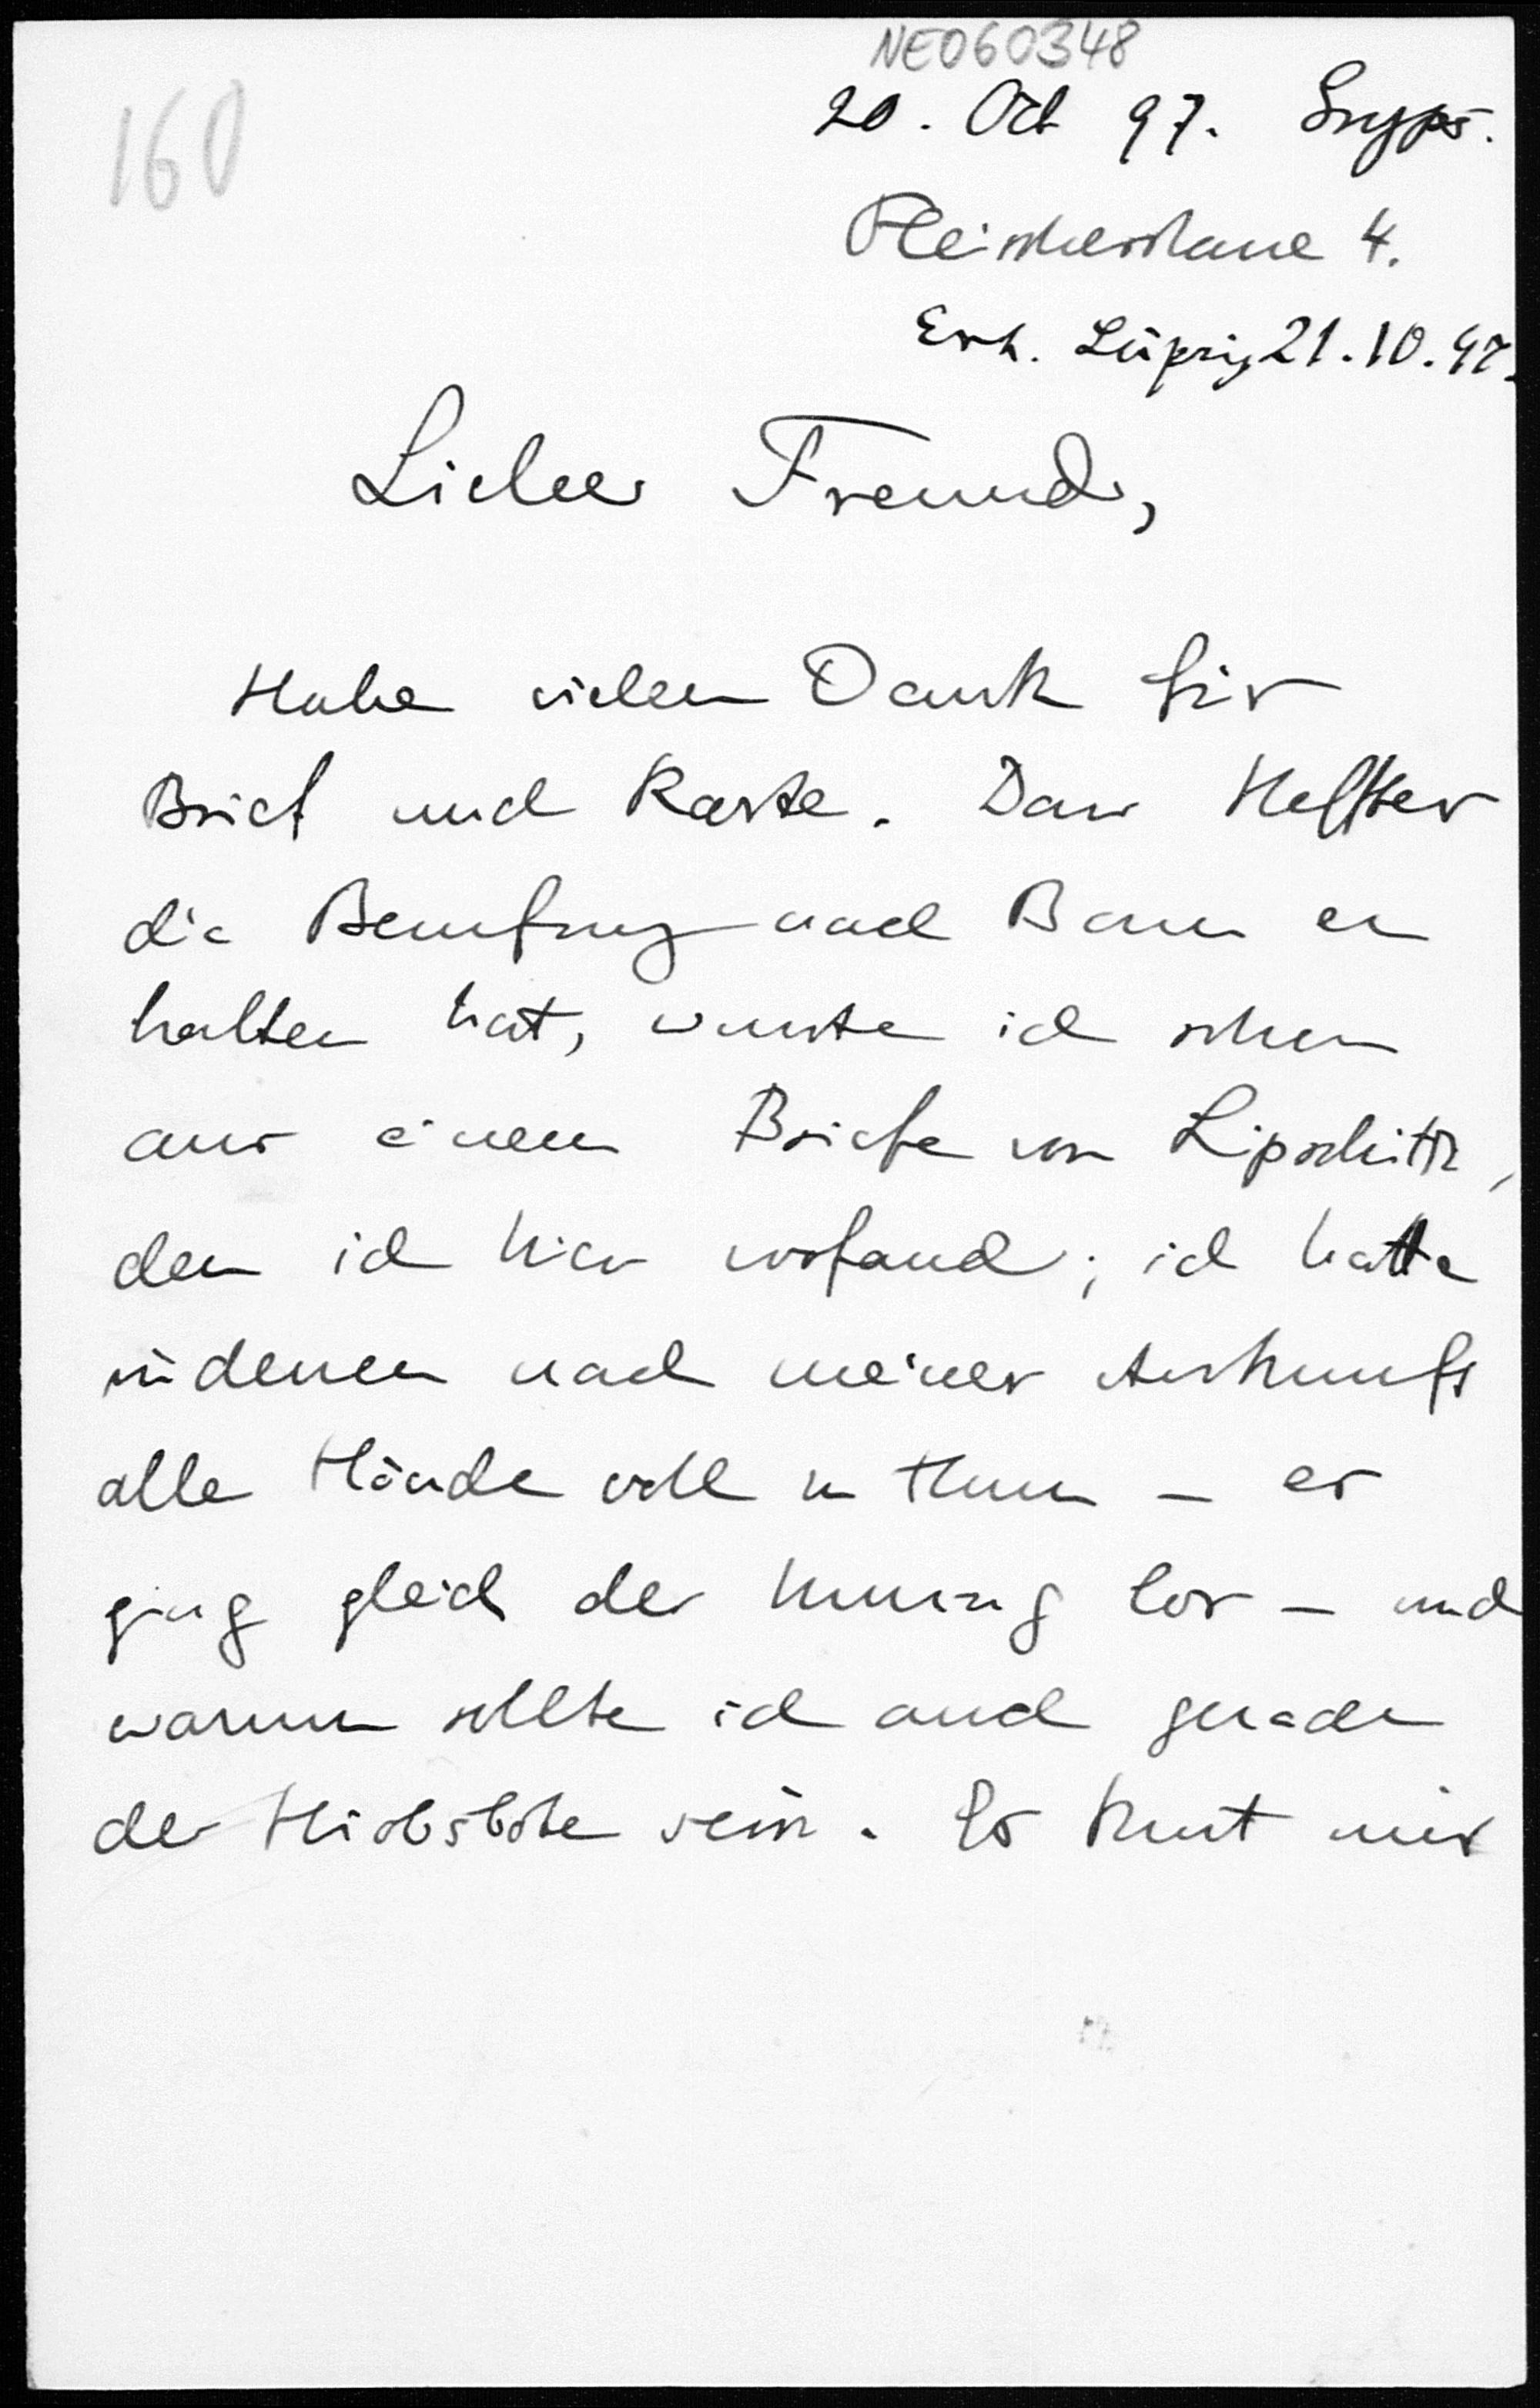 NE060348
160
20. Oct 97. Gryps.
Fleischerstrasse 4.
Erh. Leipzig 21.10.97.
Lieber Freund,
Habe vielen Dank für
Brief und Karte. Dass Heffter
die Berufung nach Bern er
halten hat, wusste ich schon
aus einem Briefe von Lipschitz,
den ich hier vorfand; ich hatte
indessen nach meiner Ankunft
alle Hände voll zu thun – es
ging gleich der Umzug los – und
warum sollte ich auch gerade
der Hiobsbote sein. Es thut mir